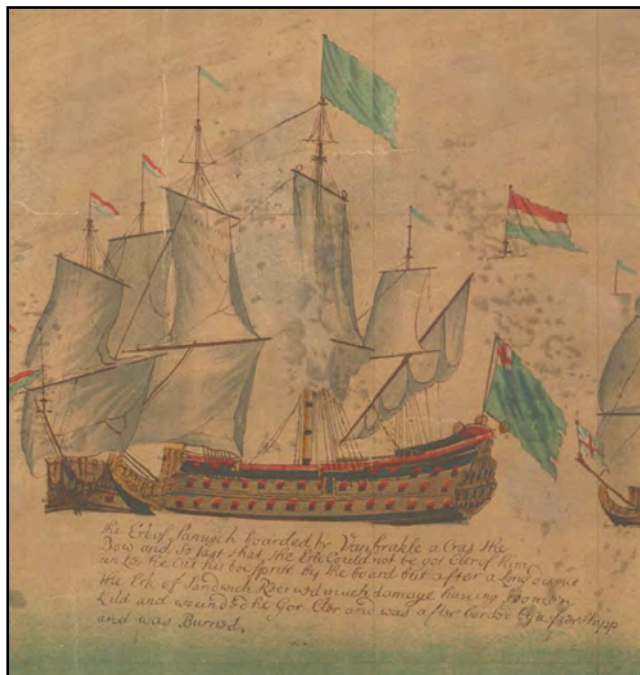 the Erl of Sanwich boarded by Vanbrakle a Cras the
Bow and so fast that the Erle Could not be got Cler of him
he Cut his bospritt by the board but after a Long
the Erle of Sandwich much damage having men
kild and wounded he Got Cler and was after borded by a fier shipp
and was Burned,